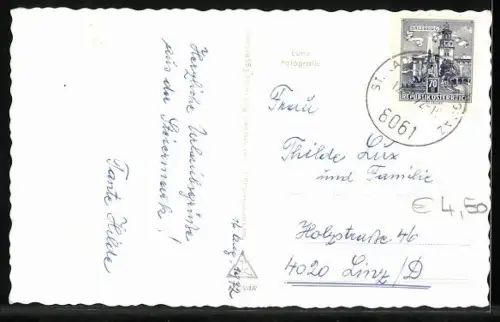 Herzliche Urlaubsgrüße
aus der Steiermark!
Tante Hilde
16. Aug. 1972
Echte
Fotografie
SALZBURG
70
REPUBLIK ÖSTERREICH
8061
Frau
Thilde Lux
und Familie
Holzstraße 46
4020 Linz/D
€ 4,50